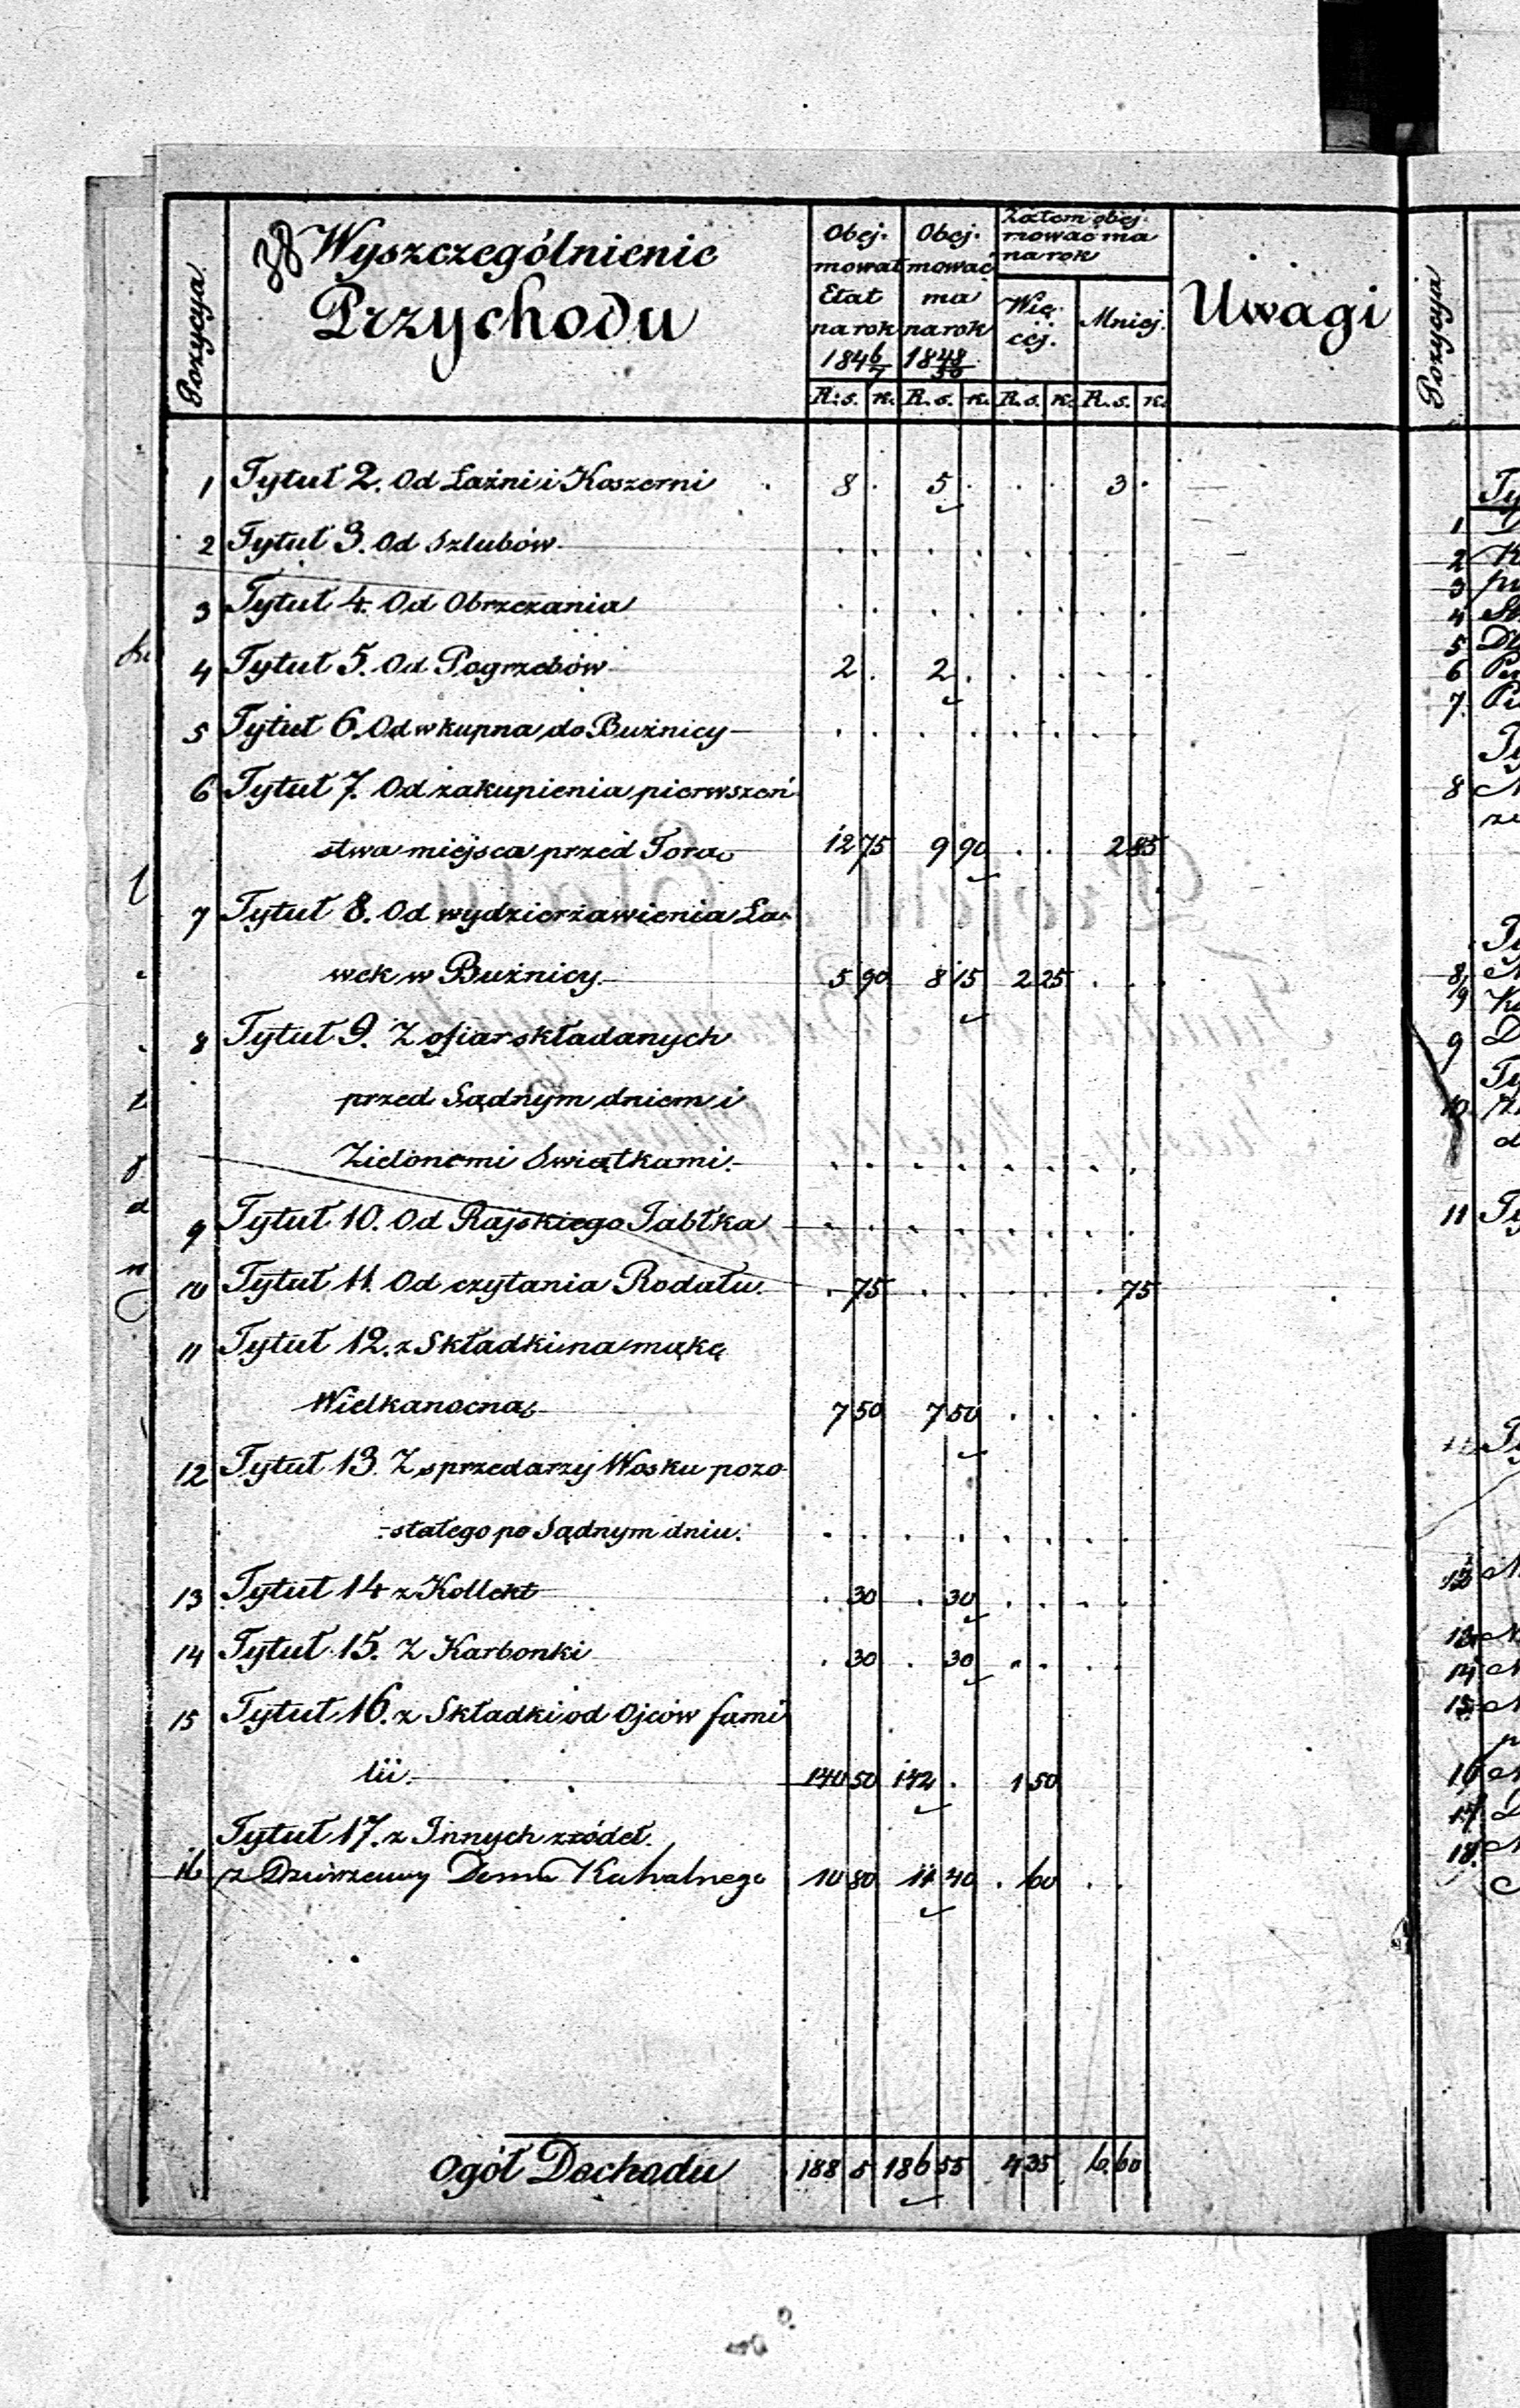 38 Wyszczególnienie
Przychodu
Pozycya
Obej-
mował
Etat
na rok
1846/7
Obej-
mować
ma
na rok
1848/50
Zatem obej-
mować ma
na rok
Wię-
cej.
Mniej.
Uwagi
R. s. k. R. s. k. R. s. k. R. s. k.
1 Tytuł 2. Od Łaźni i Koszerni . 8 . 5 . . . 3 .
2 Tytuł 3. Od Szlubów . . . . . . . .
3 Tytuł 4. Od Obrzezania . . . . . . . .
4 Tytuł 5. Od Pogrzebów 2 . 2 . . . . .
5 Tytuł 6. Od wkupna do Bużnicy . . . . . . . .
6 Tytuł 7. Od zakupienia pierwszeń-
stwa miejsca przed Torą 12 75 9 90 . . 2 85
7 Tytuł 8. Od wydzierżawienia Ła-
wek w Bużnicy. 5 90 8 15 2 25 . .
8 Tytuł 9. Z ofiar składanych
przed Sądnym dniem i
Zielonemi Świątkami. . . . . . . . .
9 Tytuł 10. Od Rajskiego Jabłka . . . . . . . .
10 Tytuł 11. Od czytania Rodału. . 75 . . . . . 75
11 Tytuł 12. z Składki na mąkę
Wielkanocną 7 50 7 50 . . . .
12 Tytuł 13. Z sprzedarzy Wosku pozo-
-stałego po Sądnym dniu. . . . . . . . .
13 Tytuł 14 z Kollekt . 30 . 30 . . . .
14 Tytuł 15. Z Karbonki . 30 . 30 . . . .
15 Tytuł 16. z Składki od Ojców fami-
lii. 140 50 142 . 1 50
Tytuł 17. z Innych zródeł.
16 z Dzierżawy Domu Kahalnego 10 80 11 40 . 60 . .
Ogół Dochodu 188 5 186 55 4 35 6 60
Pozycya
1
2
3
4
5
6
7.
8
9
10
11